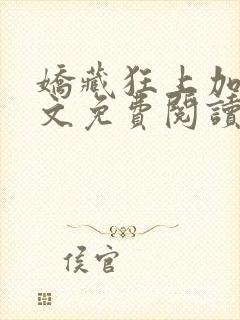 嬌藏狂上加
文免費閱讀
侯官